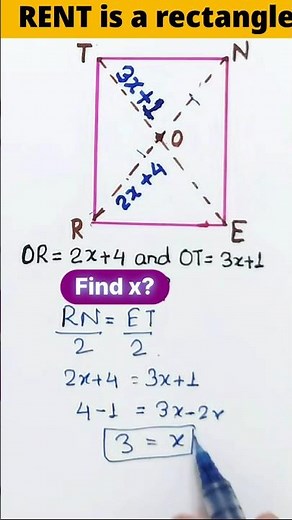 RENT is a rectangle
T N
3x+1
O
2x+4
R E
OR = 2x+4 and OT = 3x+1
Find x?
RN/2 = ET/2
2x+4 = 3x+1
4-1 = 3x-2x
3 = x